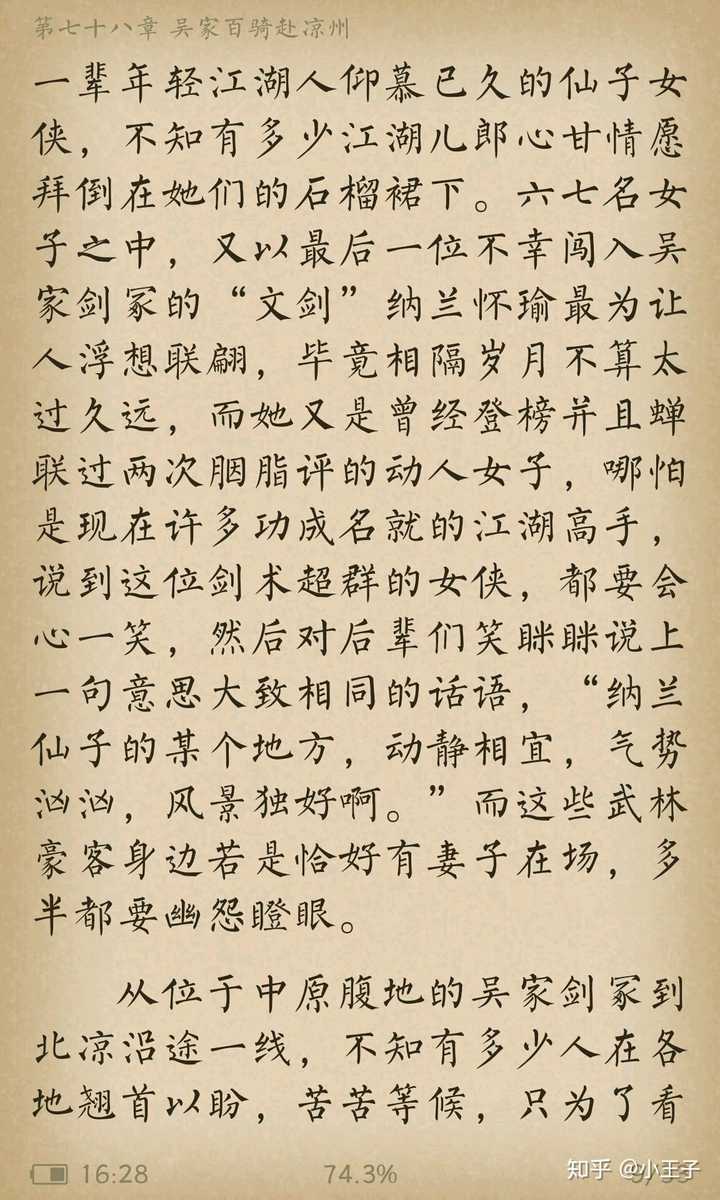 第七十八章 吴家百骑赴凉州
一辈年轻江湖人仰慕已久的仙子女
侠，不知有多少江湖儿郎心甘情愿
拜倒在她们的石榴裙下。六七名女
子之中，又以最后一位不幸闯入吴
家剑冢的“文剑”纳兰怀瑜最为让
人浮想联翩，毕竟相隔岁月不算太
过久远，而她又是曾经登榜并且蝉
联过两次胭脂评的动人女子，哪怕
是现在许多功成名就的江湖高手，
说到这位剑术超群的女侠，都要会
心一笑，然后对后辈们笑眯眯说上
一句意思大致相同的话语，“纳兰
仙子的某个地方，动静相宜，气势
汹汹，风景独好啊。”而这些武林
豪客身边若是恰好有妻子在场，多
半都要幽怨瞪眼。
从位于中原腹地的吴家剑冢到
北凉沿途一线，不知有多少人在各
地翘首以盼，苦苦等候，只为了看
16:28 74.3%
知乎 @小王子